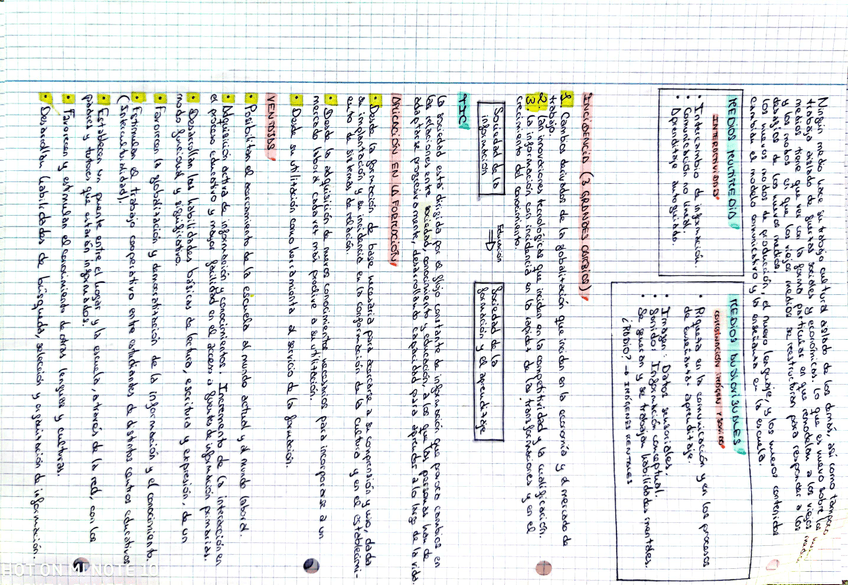 Ningún medio hace su trabajo cultural aislado de los demás, así como tampoco
trabaja aislado de fuerzas sociales y económicas. Lo que es nuevo sobre los
medios tiene que ver con la forma particular en que remodelan a los viejos medios
y los modos en que los viejos medios se restructuran para responder a los
desafíos de los nuevos medios.
Los nuevos modos de producción, el nuevo lenguaje, y los nuevos contenidos
cambian el modelo comunicativo y la enseñanza en la escuela.
MEDIOS MULTIMEDIA
INTERACTIVIDAD
• Intercambio de información.
• Comunicación no lineal.
• Aprendizaje autoguiado.
MEDIOS AUDIOVISUALES
COMBINACIÓN IMAGEN Y SONIDO
• Riqueza en la comunicación y en los procesos
de enseñanza-aprendizaje.
• Imagen: Datos sensoriales.
• Sonido: Información conceptual.
• Se guían y se trabajan habilidades mentales.
¿RADIO? → IMÁGENES MENTALES
INCIDENCIA (3 GRANDES CAMBIOS)
1. Cambios derivados de la globalización que inciden en la economía y el mercado de
trabajo.
2. Las innovaciones tecnológicas que inciden en la competitividad y la cualificación.
3. La información con incidencia en la rapidez de las transformaciones y en el
crecimiento del conocimiento.
Sociedad de la
información
Educación
⇒
Sociedad de la
formación y el aprendizaje
TIC
La sociedad está dirigida por el flujo constante de información que provoca cambios en
las relaciones entre sociedad, conocimiento y educación, a los que las personas han de
adaptarse progresivamente, desarrollando capacidad para aprender a lo largo de la vida
APLICACIÓN EN LA FORMACIÓN
• Desde la formación de base necesaria para acercarse a su comprensión y uso, dada
su implantación y su incidencia en la conformación de la cultura y en el establecimi-
ento de sistemas de relación.
• Desde la adquisición de nuevos conocimientos necesarios para incorporarse a un
mercado laboral cada vez más proclive a su utilización.
• Desde su utilización como herramienta al servicio de la formación.
VENTAJAS
• Posibilitan el acercamiento de la escuela al mundo actual y al mundo laboral.
• Adquisición activa de información y conocimientos. Incremento de la interacción en
el proceso educativo y mayor facilidad en el acceso a fuentes de información primarias.
• Desarrollan las habilidades básicas de lectura, escritura y expresión, de un
modo funcional y significativo.
• Favorecen la globalización y democratización de la información y el conocimiento.
• Estimulan el trabajo cooperativo entre estudiantes de distintos centros educativos
(Interculturalidad).
• Establecen un puente entre el hogar y la escuela, a través de la red, con los
padres y tutores que estarán informados.
• Favorecen y estimulan el conocimiento de otras lenguas y culturas.
• Desarrollan habilidades de búsqueda, selección y organización de información.
HOT ON MI NOTE 10